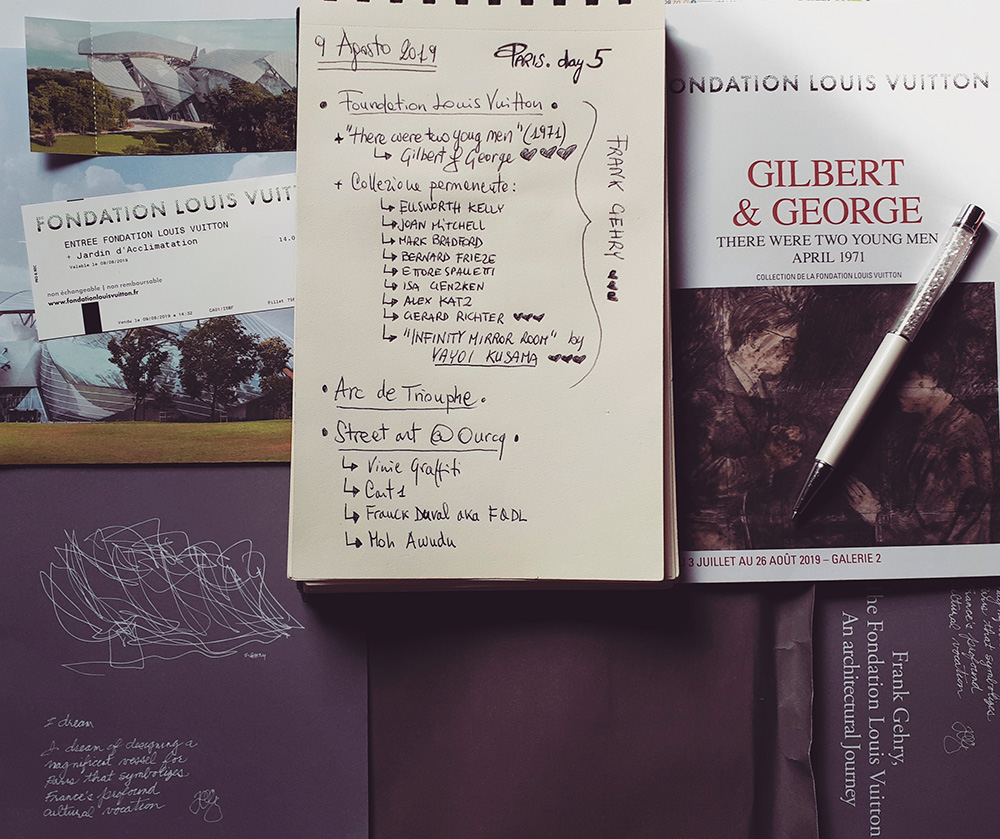 9 Agosto 2019
PARIS. day 5
• Foundation Louis Vuitton •
+ "there were two young men" (1971)
↳ Gilbert & George ♥♥♥
+ Collezione permanente:
↳ ELLSWORTH KELLY
↳ JOAN MITCHELL
↳ MARK BRADFORD
↳ BERNARD FRIEZE
↳ ETTORE SPALLETTI
↳ ISA GENZKEN
↳ ALEX KATZ
↳ GERARD RICHTER ♥♥♥
↳ "INFINITY MIRROR ROOM" by
YAYOI KUSAMA ♥♥♥
FRANK GEHRY ♥♥♥
• Arc de Triouphe.
• Street art @ Ourcq •
↳ Vinie Graffiti
↳ Cart1
↳ Franck Duval aka FQDL
↳ Moh Awudu
FONDATION LOUIS VUIT
ENTREE FONDATION LOUIS VUITTON
+ Jardin d'Acclimatation
14.0
Valable le 09/08/2019
non échangeable | non remboursable
www.fondationlouisvuitton.fr
Vendu le 09/08/2019 à 14:32
CA01/ISBF
Billet 756
ONDATION LOUIS VUITTON
GILBERT
& GEORGE
THERE WERE TWO YOUNG MEN
APRIL 1971
COLLECTION DE LA FONDATION LOUIS VUITTON
3 JUILLET AU 26 AOÛT 2019 – GALERIE 2
F. GEHRY
I dream
I dream of designing a
magnificent vessel for
Paris that symbolizes
France's profound
cultural vocation
Frank Gehry,
he Fondation Louis Vuitton
An architectural Journey
that symbolizes
rance's profound
ultural vocation